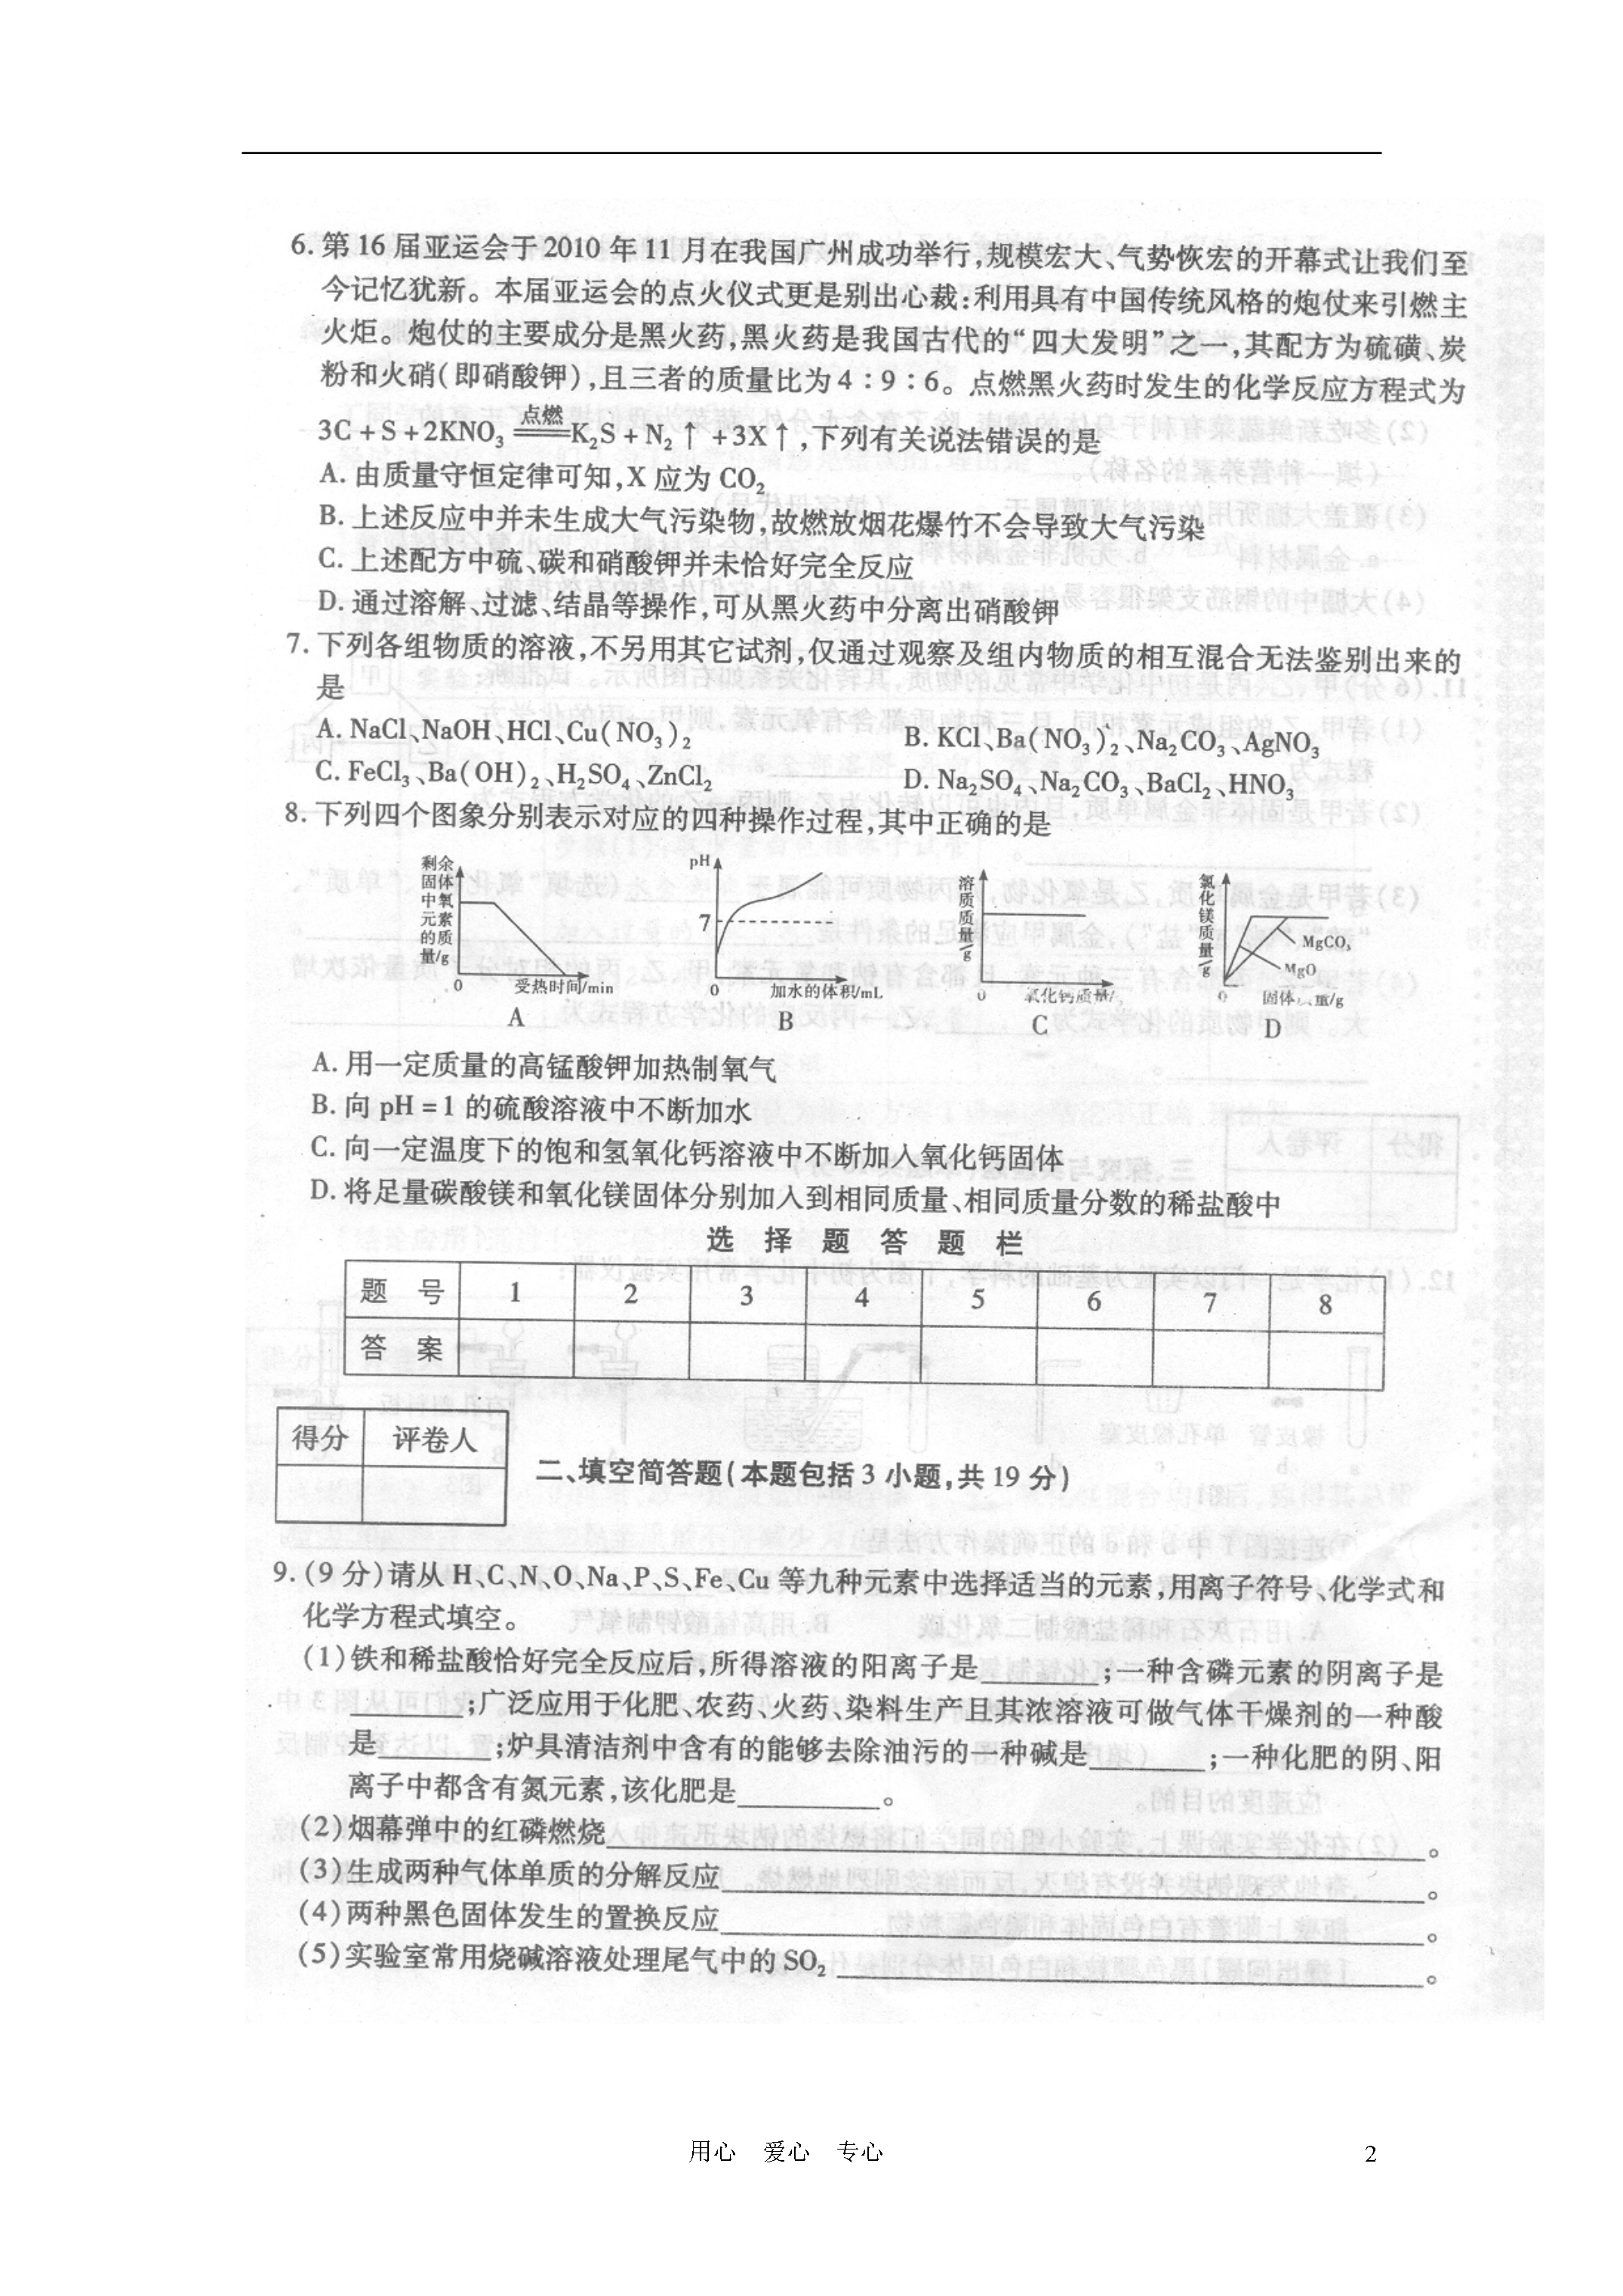 6. 第 16 届亚运会于 2010 年 11 月在我国广州成功举行,规模宏大、气势恢宏的开幕式让我们至
今记忆犹新。本届亚运会的点火仪式更是别出心裁:利用具有中国传统风格的炮仗来引燃主
火炬。炮仗的主要成分是黑火药,黑火药是我国古代的“四大发明”之一,其配方为硫磺、炭
粉和火硝(即硝酸钾),且三者的质量比为 4∶9∶6。点燃黑火药时发生的化学反应方程式为
3C + S + 2KNO₃ ==点燃== K₂S + N₂↑ + 3X↑,下列有关说法错误的是
A. 由质量守恒定律可知,X 应为 CO₂
B. 上述反应中并未生成大气污染物,故燃放烟花爆竹不会导致大气污染
C. 上述配方中硫、碳和硝酸钾并未恰好完全反应
D. 通过溶解、过滤、结晶等操作,可从黑火药中分离出硝酸钾
7. 下列各组物质的溶液,不另用其它试剂,仅通过观察及组内物质的相互混合无法鉴别出来的
是
A. NaCl、NaOH、HCl、Cu(NO₃)₂ B. KCl、Ba(NO₃)₂、Na₂CO₃、AgNO₃
C. FeCl₃、Ba(OH)₂、H₂SO₄、ZnCl₂ D. Na₂SO₄、Na₂CO₃、BaCl₂、HNO₃
8. 下列四个图象分别表示对应的四种操作过程,其中正确的是
剩余固体中氧元素的质量/g 0 受热时间/min A
pH 7 0 加水的体积/mL B
溶质质量/g 0 氧化钙质量/ C
氯化镁质量/g MgCO₃ MgO 0 固体质量/g D
A. 用一定质量的高锰酸钾加热制氧气
B. 向 pH = 1 的硫酸溶液中不断加水
C. 向一定温度下的饱和氢氧化钙溶液中不断加入氧化钙固体
D. 将足量碳酸镁和氧化镁固体分别加入到相同质量、相同质量分数的稀盐酸中
选 择 题 答 题 栏
题 号 1 2 3 4 5 6 7 8
答 案
得分 评卷人
二、填空简答题(本题包括 3 小题,共 19 分)
9. (9 分)请从 H、C、N、O、Na、P、S、Fe、Cu 等九种元素中选择适当的元素,用离子符号、化学式和
化学方程式填空。
(1)铁和稀盐酸恰好完全反应后,所得溶液的阳离子是________;一种含磷元素的阴离子是
________;广泛应用于化肥、农药、火药、染料生产且其浓溶液可做气体干燥剂的一种酸
是________;炉具清洁剂中含有的能够去除油污的一种碱是________;一种化肥的阴、阳
离子中都含有氮元素,该化肥是________。
(2)烟幕弹中的红磷燃烧________。
(3)生成两种气体单质的分解反应________。
(4)两种黑色固体发生的置换反应________。
(5)实验室常用烧碱溶液处理尾气中的 SO₂ ________。
用心 爱心 专心 2